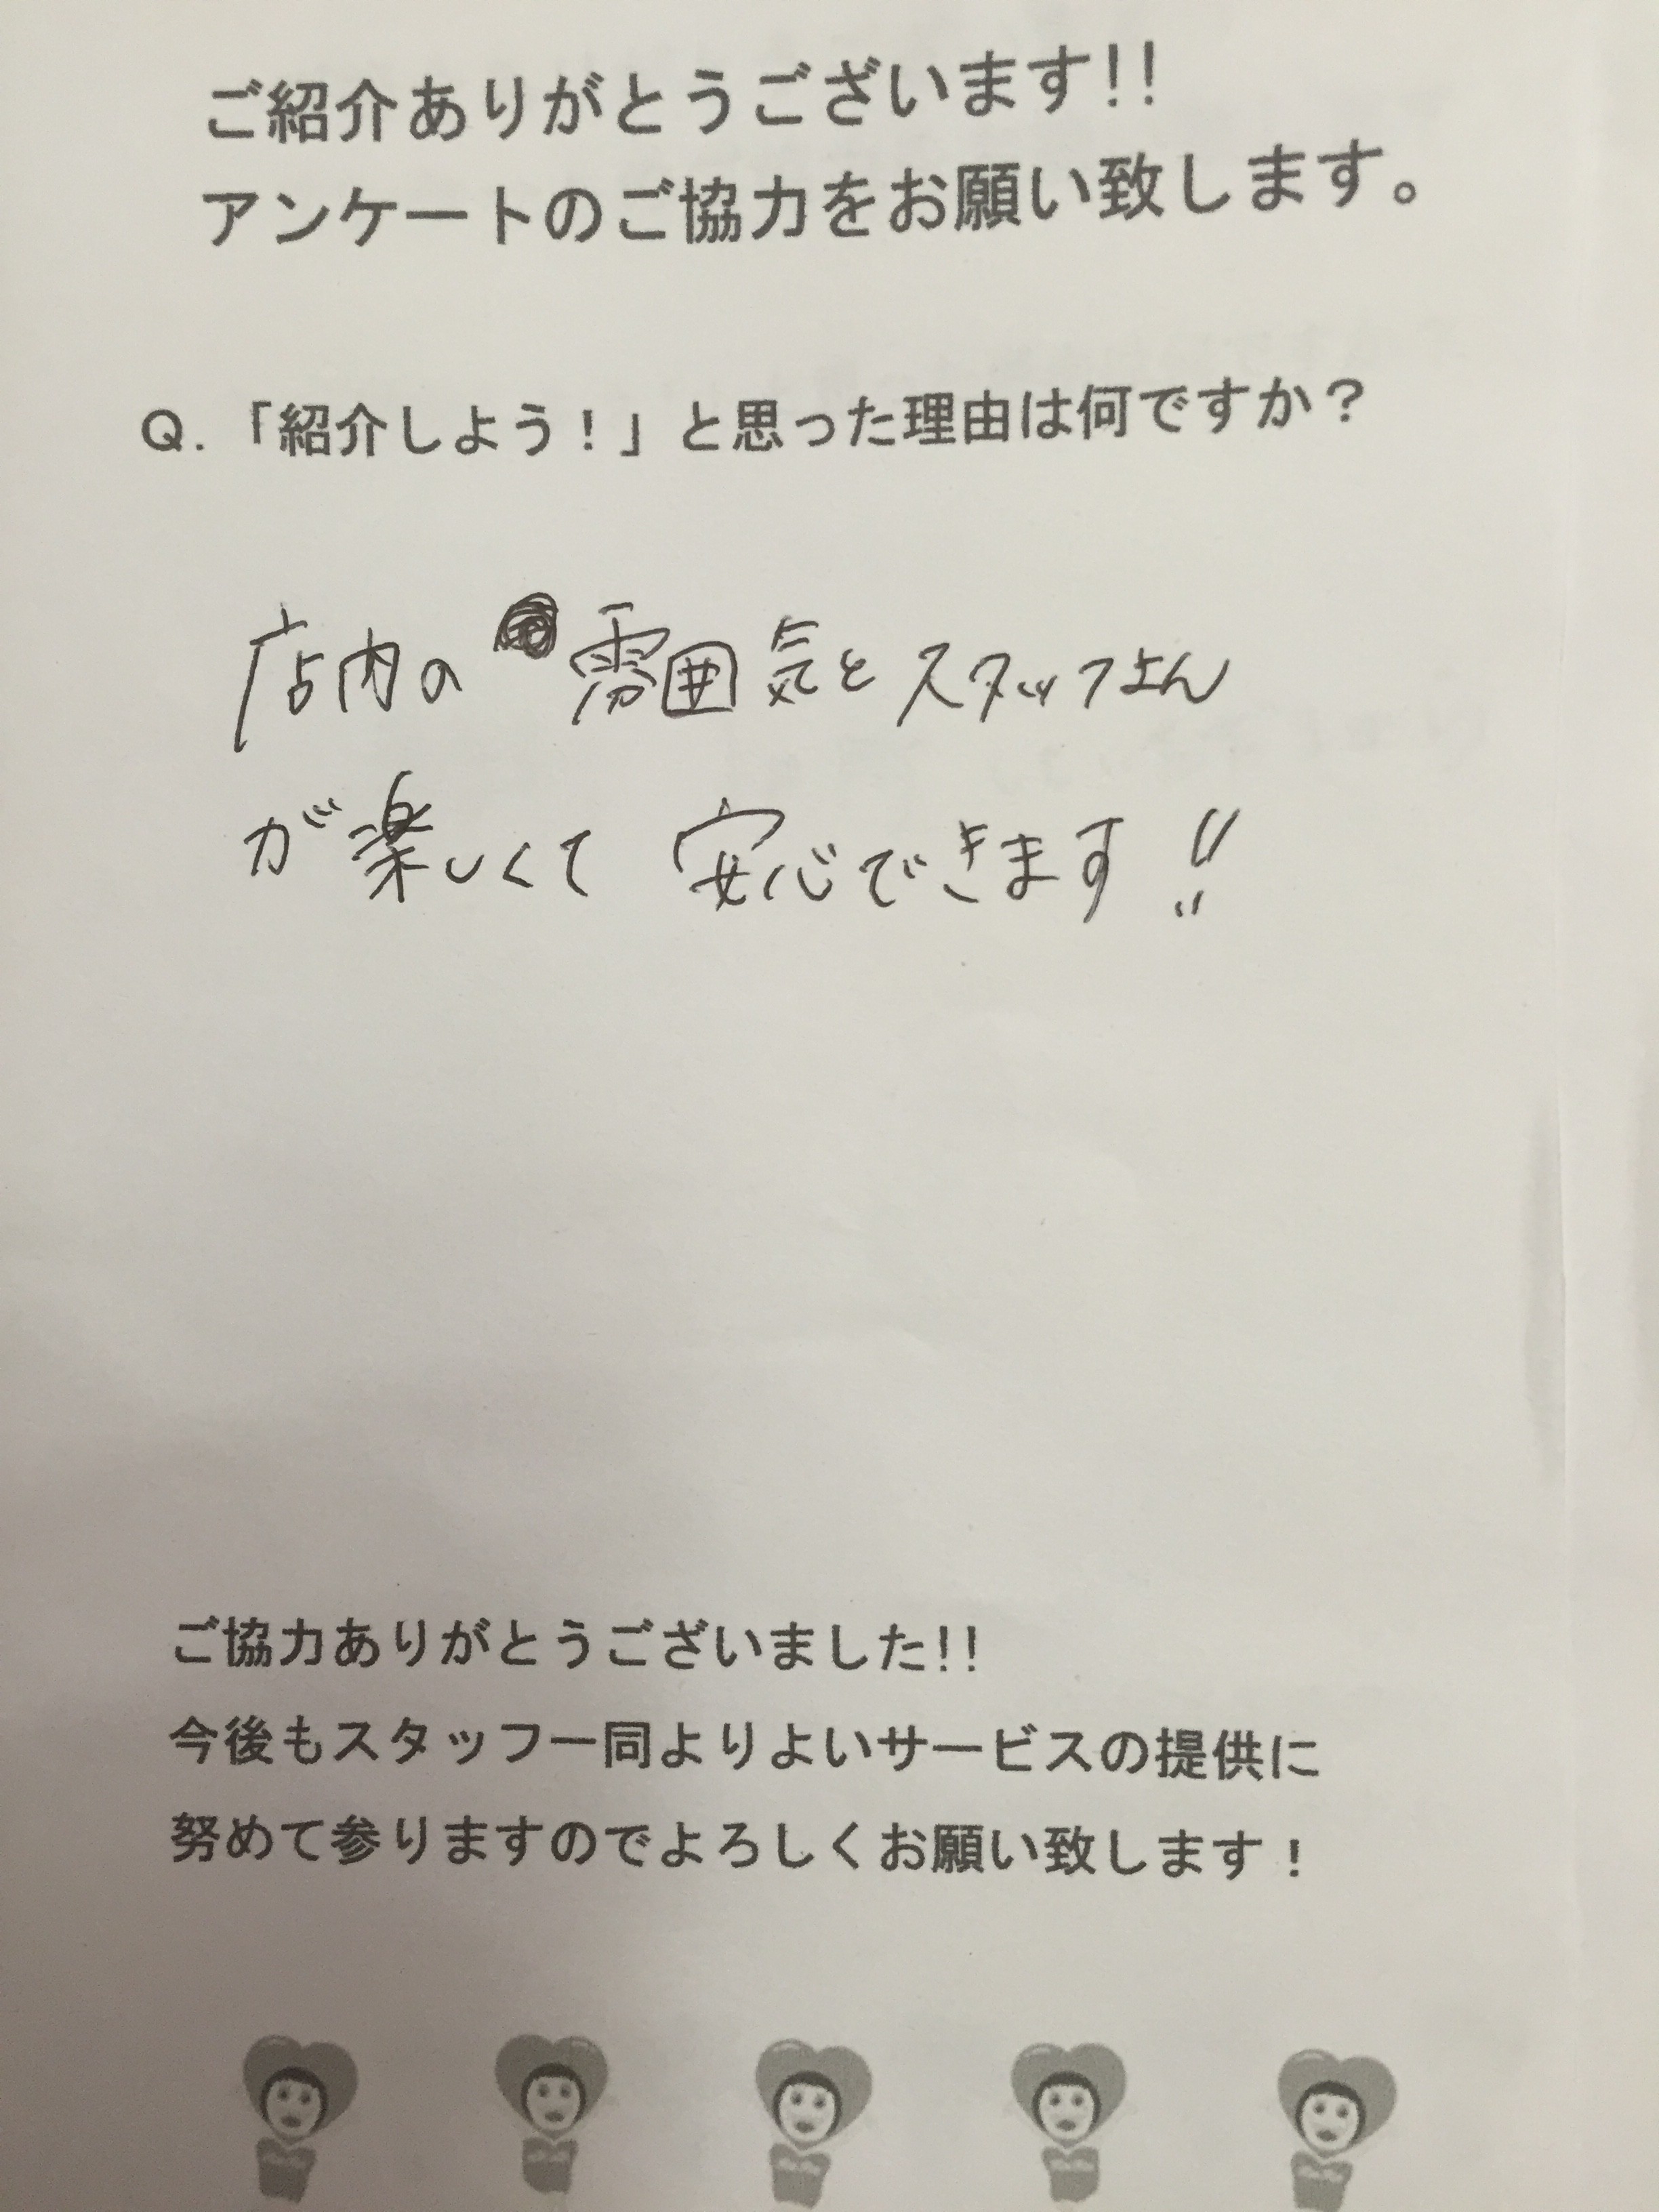 ご紹介ありがとうございます!!
アンケートのご協力をお願い致します。
Q.「紹介しよう！」と思った理由は何ですか？
店内の 雰囲気とスタッフさん
が楽しくて 安心できます!!
ご協力ありがとうございました!!
今後もスタッフ一同よりよいサービスの提供に
努めて参りますのでよろしくお願い致します！